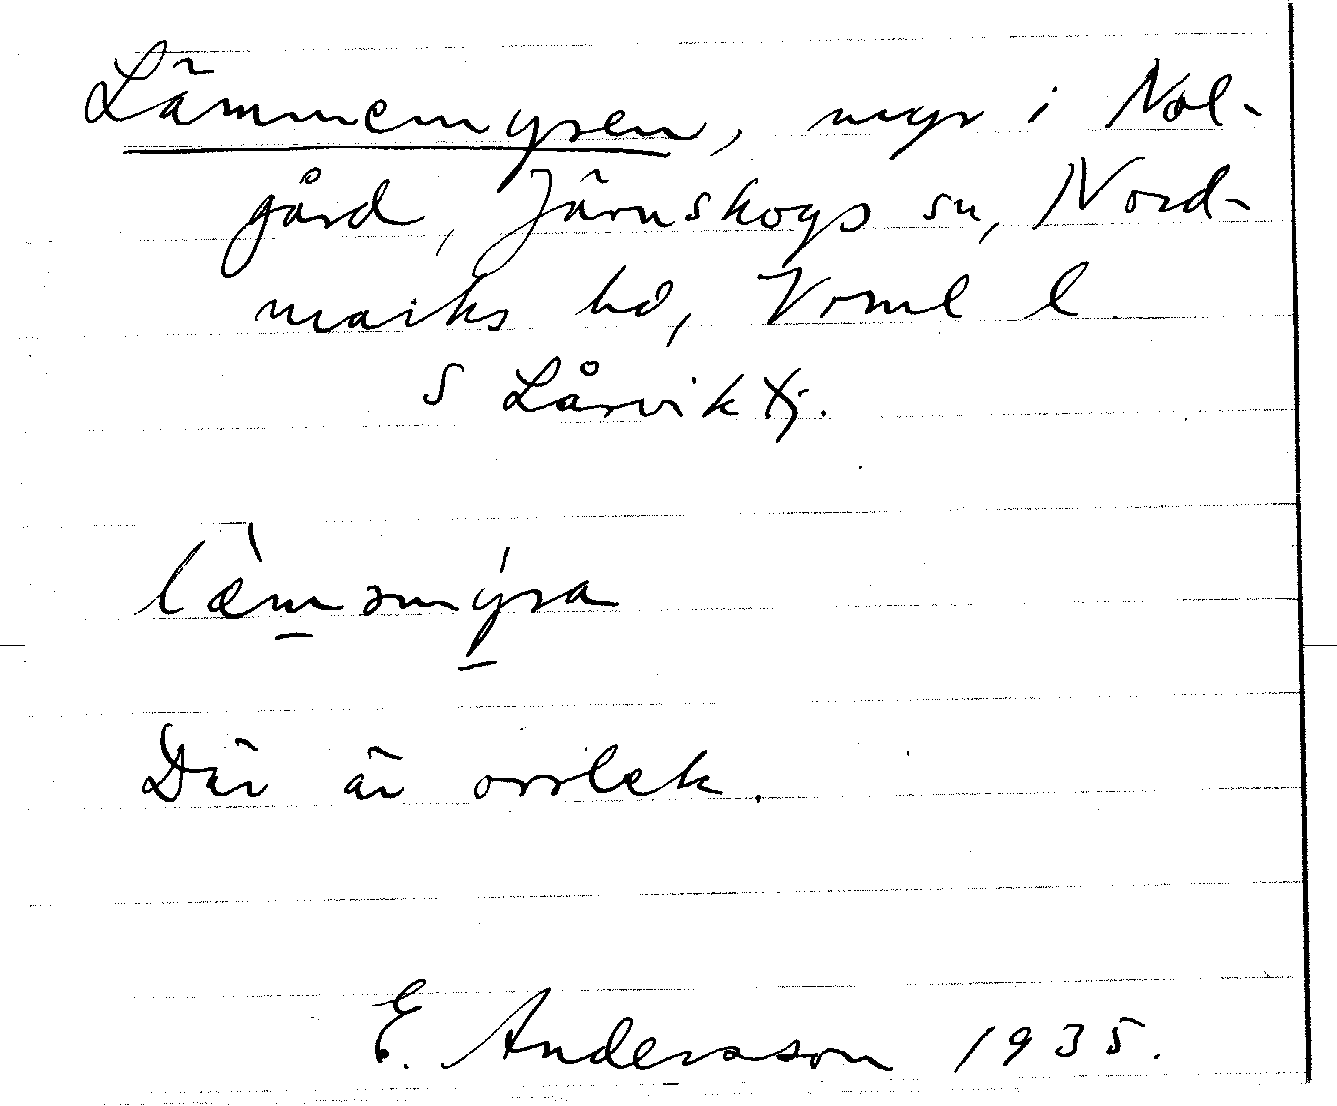 Lämmemyren, myr i Nol-
gård, Järnskogs sn, Nord-
marks hd, Vrml l
S Lårviktj.
læ̀mǝmýra
Där är orrlek.
E. Andersson 1935.